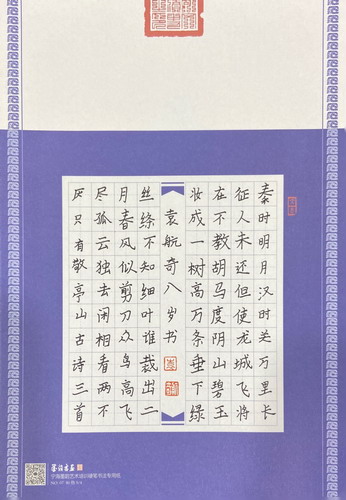 秦时明月汉时关万里长
征人未还但使龙城飞将
在不教胡马度阴山碧玉
妆成一树高万条垂下绿
袁航奇八岁书
丝绦不知细叶谁裁出二
月春风似剪刀众鸟高飞
尽孤云独去闲相看两不
厌只有敬亭山古诗三首
艺术培训硬笔书法专用纸